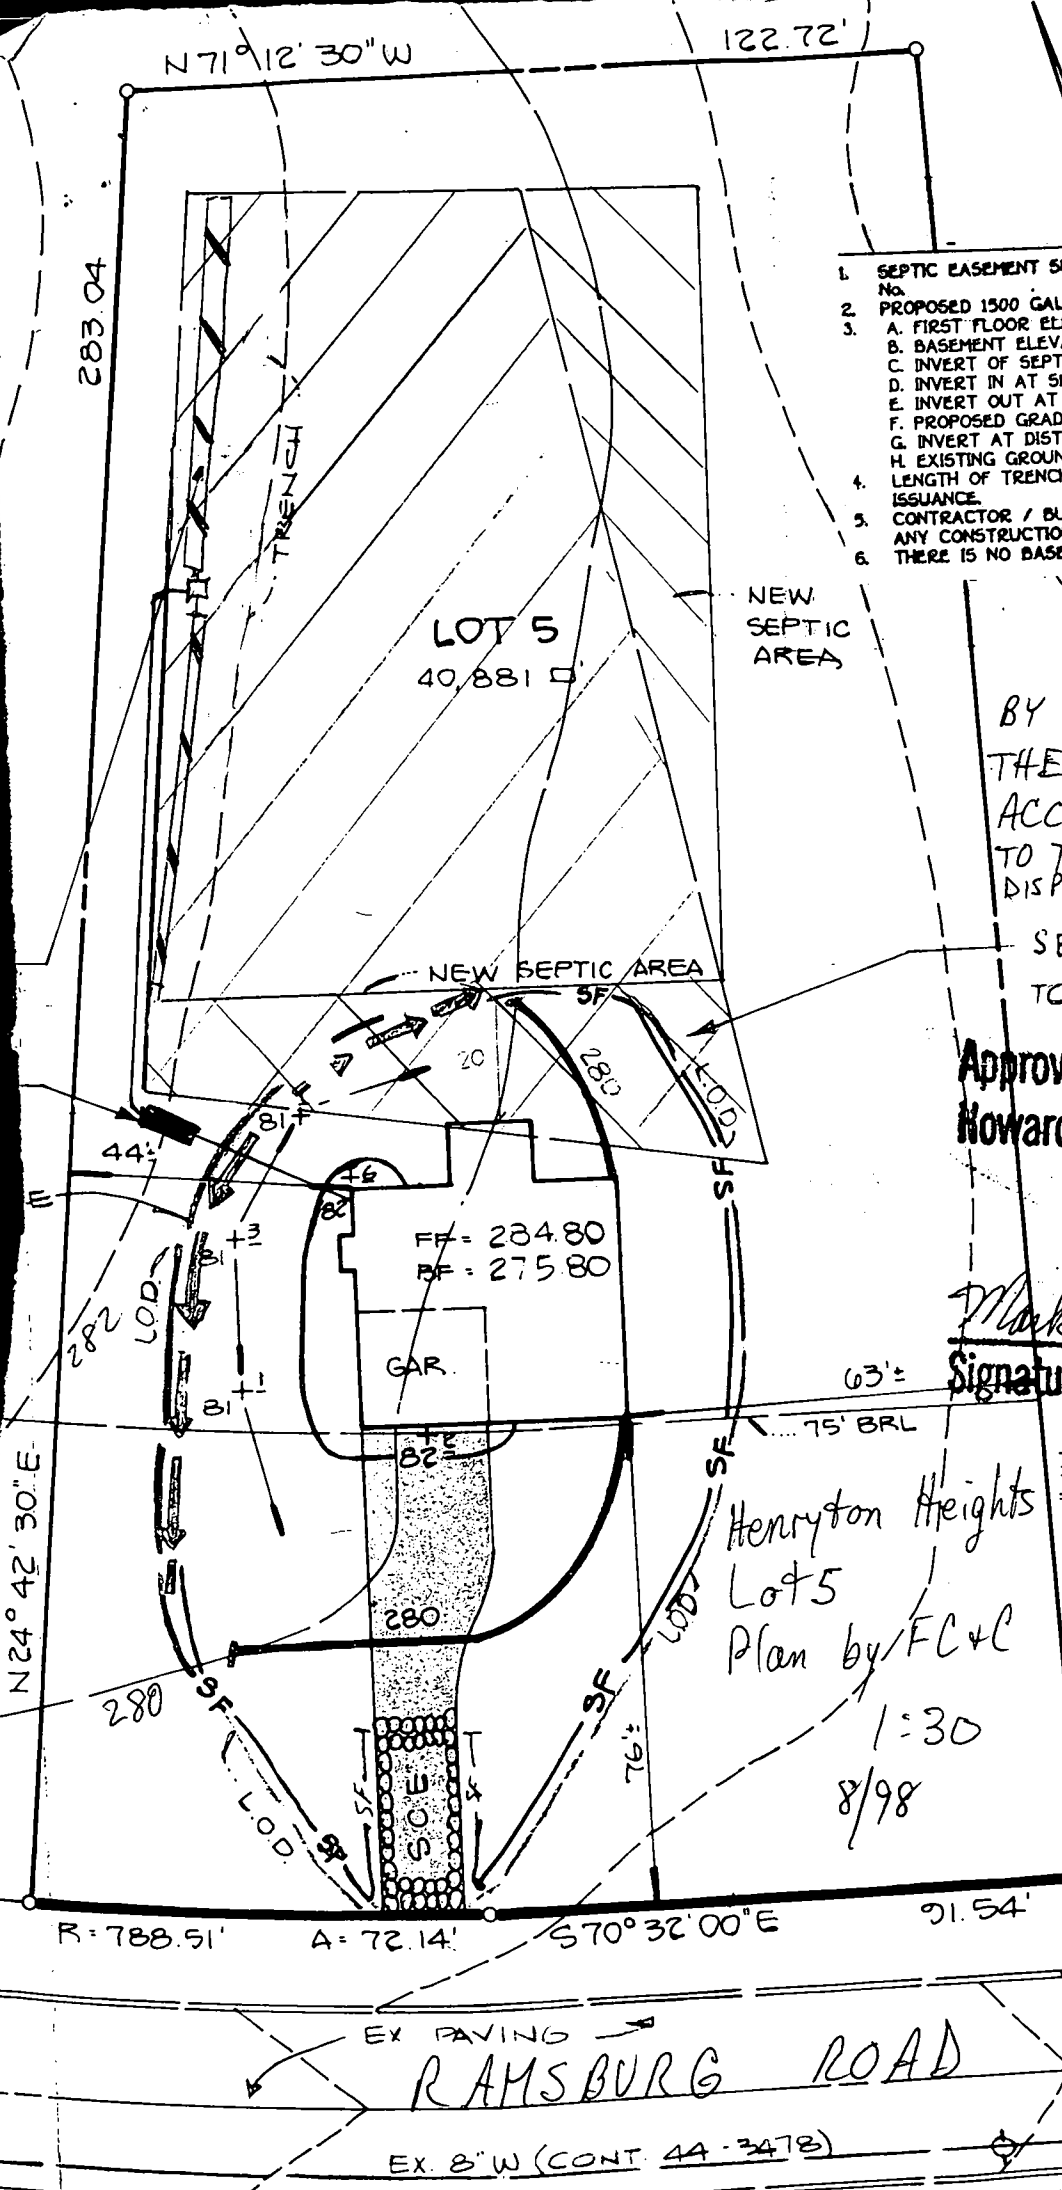 N 71° 12' 30" W
122.72'
283.04
1. SEPTIC EASEMENT
No.
2. PROPOSED 1500 GAL
3. A. FIRST FLOOR
B. BASEMENT ELEV
C. INVERT OF SEPT
D. INVERT IN AT
E. INVERT OUT AT
F. PROPOSED GRAD
G. INVERT AT DIST
H. EXISTING GROUN
4. LENGTH OF TRENC
ISSUANCE.
5. CONTRACTOR / BU
ANY CONSTRUCTIO
6. THERE IS NO BASE
TRENCH
NEW
SEPTIC
AREA
LOT 5
40,881
BY
THE
ACC
TO T
DISP
SE
TO
NEW SEPTIC AREA
SF
20
280
L.O.D.
Approv
Howard
81
44'±
E
SF
82
FF = 284.80
BF = 275.80
81 + 3
L.O.D.
282
GAR.
Mark
Signatu
63'±
75' BRL
81 + 1
82
SF
Henryton Heights
Lot 5
Plan by FC & C
1:30
8/98
N 24° 42' 30" E
280
280
L.O.D.
SF
SF
76'±
SF
SF
SCE
L.O.D.
SF
R = 788.51'
A = 72.14'
S 70° 32' 00" E
91.54'
EX PAVING
RAMSBURG ROAD
EX. 8" W (CONT. 44-3478)